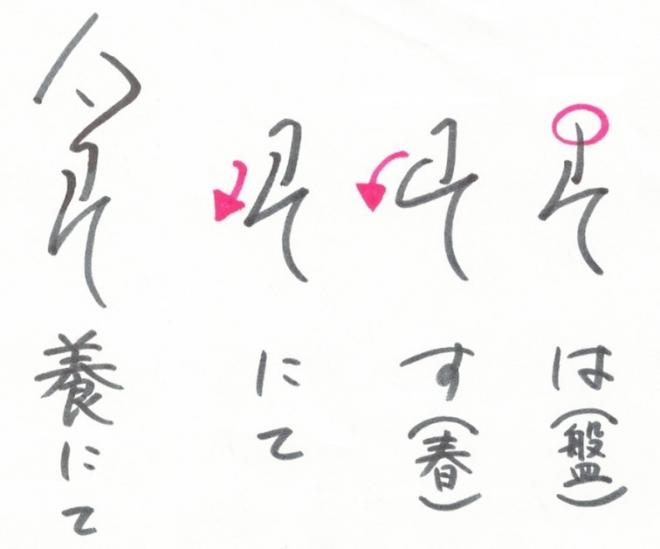 は(盤)
す(春)
にて
養にて